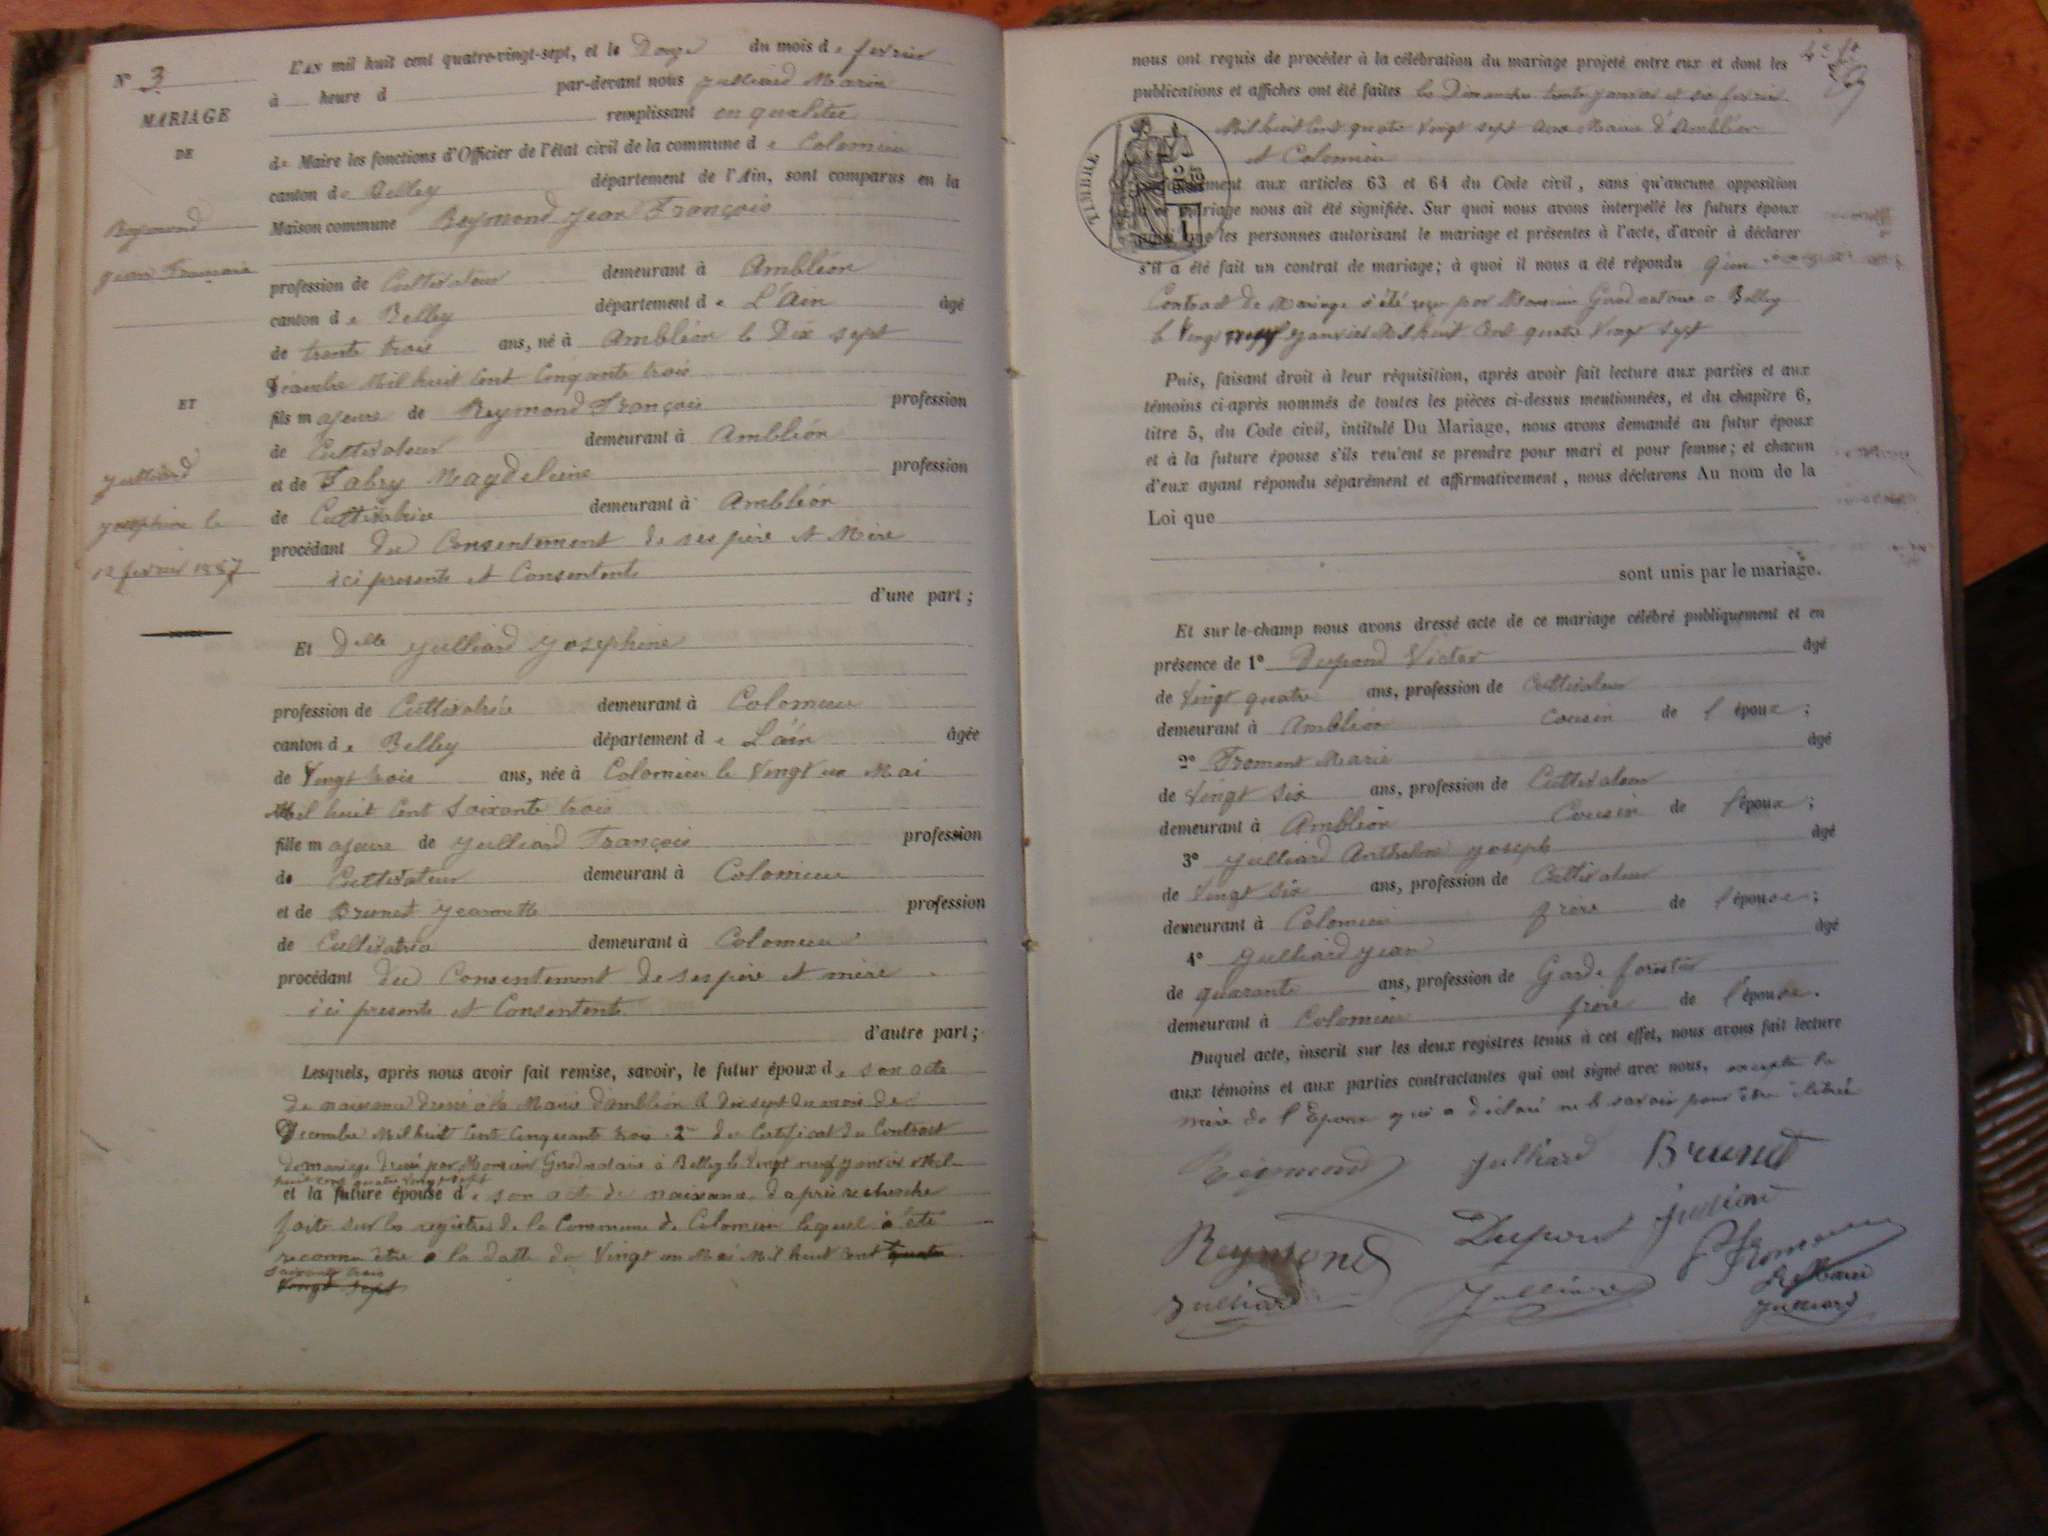 N° 3
MARIAGE
DE
Reymond
Jean François
ET
Julliard
Josephine le
12 fevrier 1887
L'AN mil huit cent quatre-vingt-sept, et le Douze du mois de fevrier
à heure d par-devant nous Julliard Marin
remplissant en qualitée
de Maire les fonctions d'Officier de l'état civil de la commune de Colomieu
canton de Belley département de l'Ain, sont comparus en la
Maison commune Reymond Jean François
profession de Cultivateur demeurant à Ambléon
canton de Belley département de L'Ain âgé
de trente trois ans, né à Ambléon le Dix sept
Décembre Mil huit Cent Cinquante trois
fils majeure de Reymond François profession
de Cultivateur demeurant à Ambléon
et de Fabry Magdeleine profession
de Cultivatrice demeurant à Ambléon
procédant du Consentement de ses père et Mère
ici presents et Consentents
d'une part ;
Et Delle Julliard Josephine
profession de Cultivatrice demeurant à Colomieu
canton de Belley département de L'Ain âgée
de Vingt trois ans, née à Colomieu le Vingt un Mai
Mil huit Cent Soixante trois
fille majeure de Julliard François profession
de Cultivateur demeurant à Colomieu
et de Brunet Jeannette profession
de Cultivatrice demeurant à Colomieu
procédant du Consentement de ses père et mère
ici presents et Consentents
d'autre part ;
Lesquels, après nous avoir fait remise, savoir, le futur époux de son acte
de naissance dressé à la Mairie d'Ambléon le dix sept du mois de
Decembre Mil huit Cent Cinquante trois 2° du Certificat du Contract
de mariage dressé par Monsieur notaire à Belley le vingt neuf janvier Mil
huit cent quatre vingt sept
et la future épouse de son acte de naissance d'après recherche
faite sur les registres de la Commune de Colomieu lequel à été
reconnu être à la datte du Vingt un Mai Mil huit cent quatre
soixante trois
Vingt sept
nous ont requis de procéder à la célébration du mariage projeté entre eux et dont les
publications et affiches ont été faites les Dimanches trente janvier et six fevrier
Mil huit Cent quatre Vingt sept aux Mairie d'Ambléon
et Colomieu
aux articles 63 et 64 du Code civil, sans qu'aucune opposition
mariage nous ait été signifiée. Sur quoi nous avons interpellé les futurs époux
les personnes autorisant le mariage et présentes à l'acte, d'avoir à déclarer
s'il a été fait un contrat de mariage; à quoi il nous a été répondu qu'un
Contract de Mariage à été reçu par Monsieur notaire à Belley
le Vingt neuf janvier Mil huit Cent quatre Vingt sept
TIMBRE
Puis, faisant droit à leur réquisition, après avoir fait lecture aux parties et aux
témoins ci-après nommés de toutes les pièces ci-dessus mentionnées, et du chapitre 6,
titre 5, du Code civil, intitulé Du Mariage, nous avons demandé au futur époux
et à la future épouse s'ils veu'ent se prendre pour mari et pour femme; et chacun
d'eux ayant répondu séparément et affirmativement, nous déclarons Au nom de la
Loi que
sont unis par le mariage.
Et sur-le-champ nous avons dressé acte de ce mariage célébré publiquement et en
présence de 1° Dupond Victor âgé
de Vingt quatre ans, profession de Cultivateur
demeurant à Ambléon Cousin de l'époux ;
2° Froment Marie âgé
de Vingt six ans, profession de Cultivateur
demeurant à Ambléon Cousin de l'époux ;
3° Julliard Anthelme Joseph âgé
de Vingt six ans, profession de Cultivateur
demeurant à Colomieu frère de l'épouse ;
4° Julliard Jean âgé
de quarante ans, profession de Garde forestier
demeurant à Colomieu frère de l'épouse.
Duquel acte, inscrit sur les deux registres tenus à cet effet, nous avons fait lecture
aux témoins et aux parties contractantes qui ont signé avec nous, excepté la
mère de l'Epoux qui a déclaré ne le savoir pour être
Reymond Julliard Brunet
Reymond Dupond Julliard
Julliard Julliard
Le Maire
Julliard